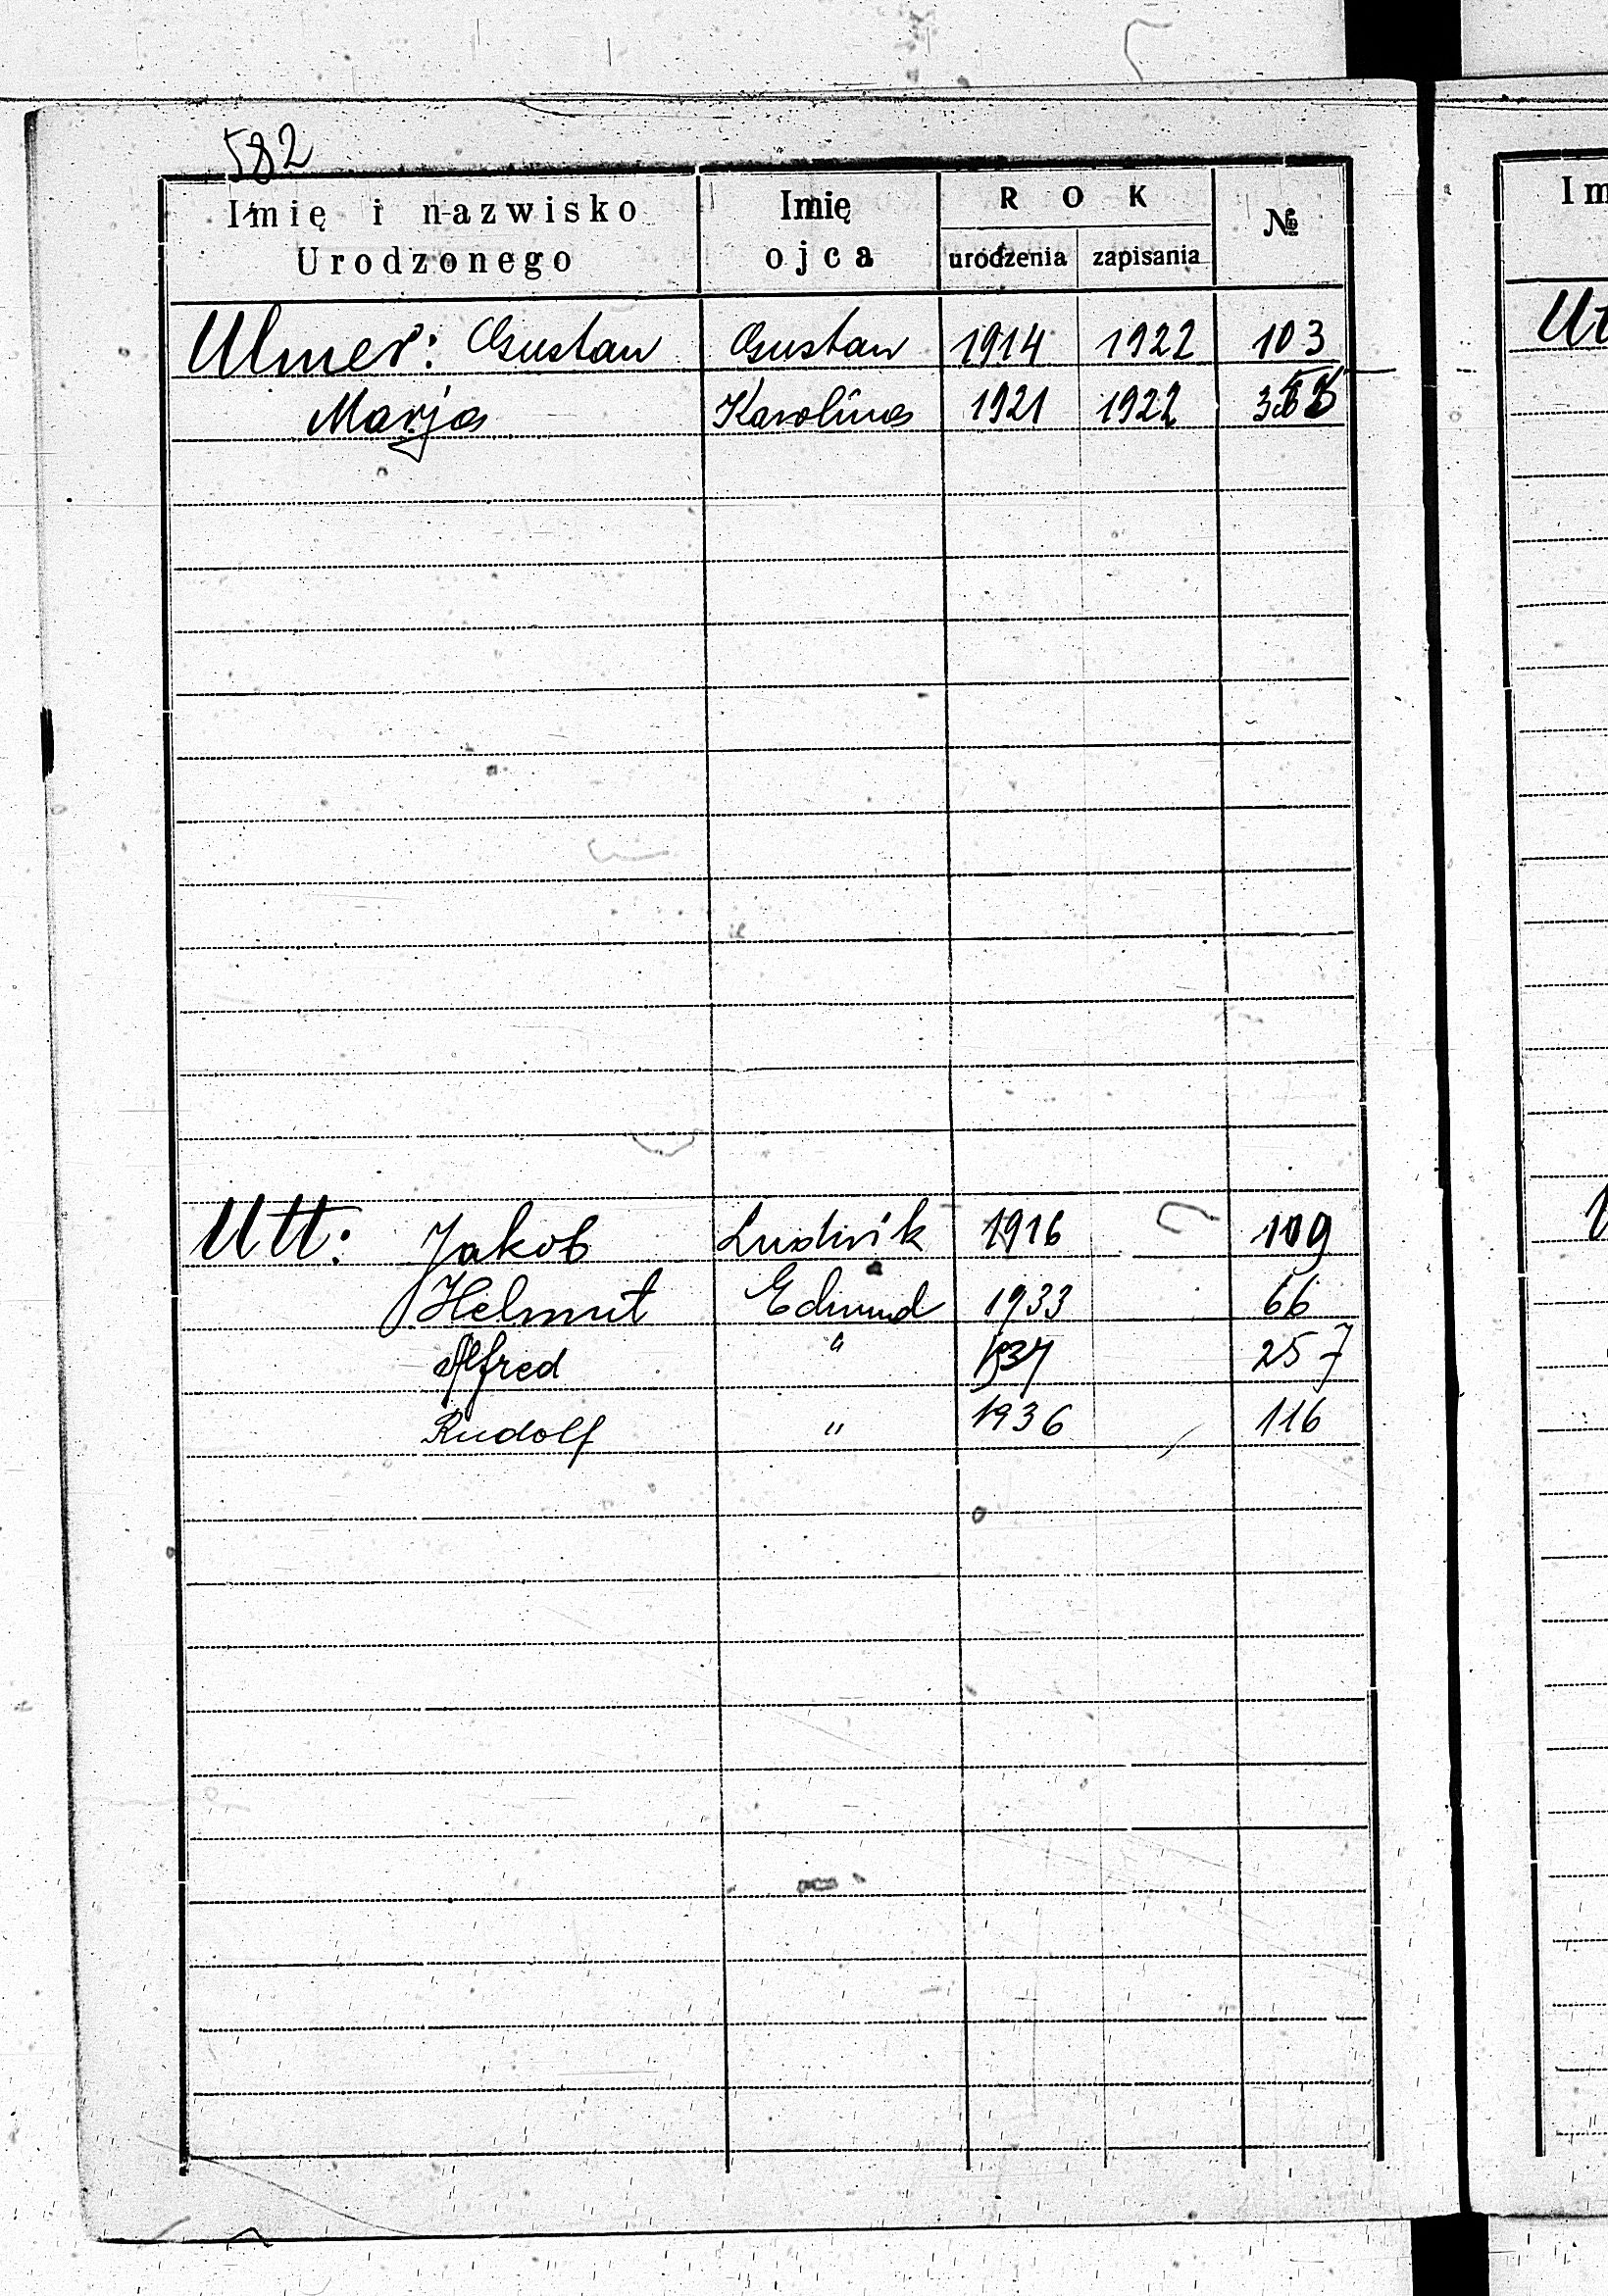 582
Imię i nazwisko Urodzonego
Imię ojca
ROK
urodzenia zapisania
№
Ulmer: Gustaw Gustaw 1914 1922 103
Marja Karolina 1921 1922
Utt: Jakob Ludwik 1916 109
Helmut Edmund 1933 66
Alfred " 1934 257
Rudolf " 1936 116
Im
Ut